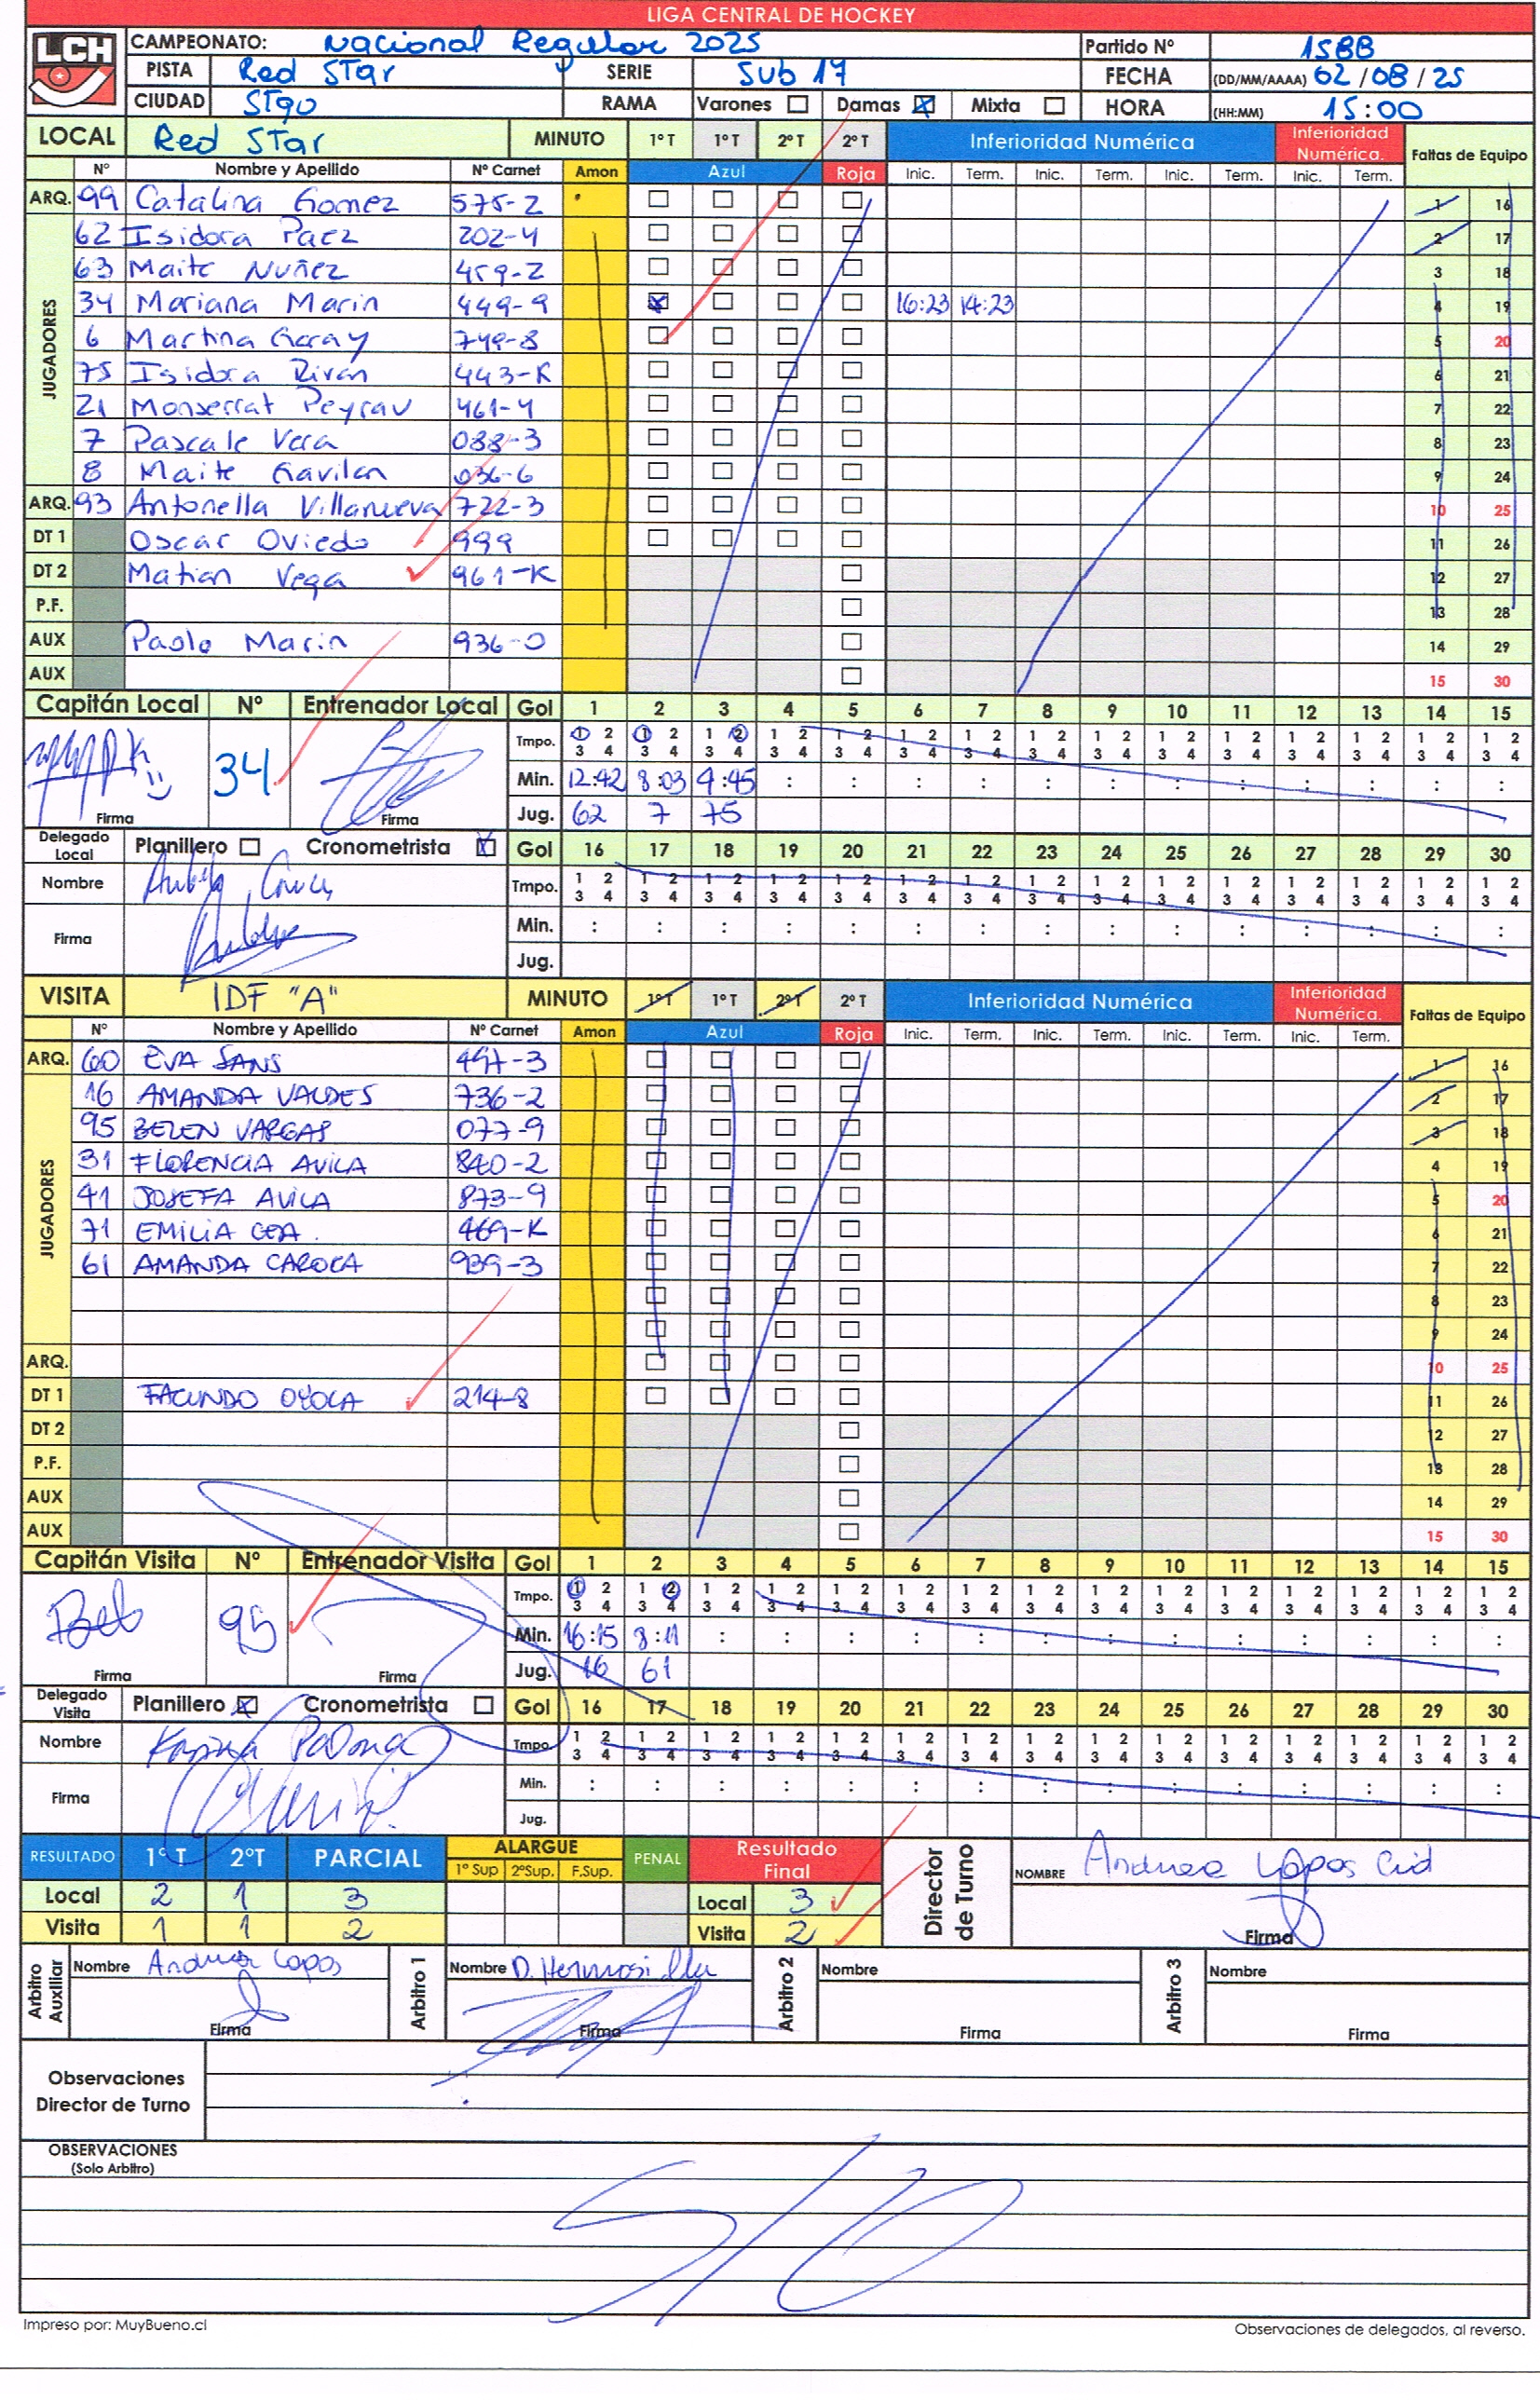 LIGA CENTRAL DE HOCKEY
LCH
CAMPEONATO: Nacional Regular 2025 Partido Nº 1588
PISTA Red STar SERIE Sub 17 FECHA (DD/MM/AAAA) 02/08/25
CIUDAD STgo RAMA Varones Damas Mixta HORA (HH:MM) 15:00
LOCAL Red STar MINUTO 1º T 1º T 2º T 2º T Inferioridad Numérica Inferioridad Numérica. Faltas de Equipo
Nº Nombre y Apellido Nº Carnet Amon Azul Roja Inic. Term. Inic. Term. Inic. Term. Inic. Term.
JUGADORES
ARQ. 99 Catalina Gomez 575-2 1 16
62 Isidora Paez 202-4 2 17
63 Maite Nuñez 459-2 3 18
34 Mariana Marin 449-9 16:23 14:23 4 19
6 Martina Garay 749-8 5 20
75 Isidora 443-K 6 21
21 Monserrat Peyrau 461-4 7 22
7 Pascale Vera 088-3 8 23
8 Maite Gavilan 036-6 9 24
ARQ. 93 Antonella Villanueva 722-3 10 25
DT 1 Oscar Oviedo 999 11 26
DT 2 Matian Vega 961-K 12 27
P.F. 13 28
AUX Paolo Marin 936-0 14 29
AUX 15 30
Capitán Local Nº Entrenador Local Gol 1 2 3 4 5 6 7 8 9 10 11 12 13 14 15
34
Tmpo. 1 2 1 2 1 2 1 2 1 2 1 2 1 2 1 2 1 2 1 2 1 2 1 2 1 2 1 2 1 2
3 4 3 4 3 4 3 4 3 4 3 4 3 4 3 4 3 4 3 4 3 4 3 4 3 4 3 4 3 4
Min. 12:42 8:03 9:45 : : : : : : : : : : : :
Firma Firma Jug. 62 7 75
Delegado Local Planillero Cronometrista Gol 16 17 18 19 20 21 22 23 24 25 26 27 28 29 30
Nombre Tmpo. 1 2 1 2 1 2 1 2 1 2 1 2 1 2 1 2 1 2 1 2 1 2 1 2 1 2 1 2 1 2
3 4 3 4 3 4 3 4 3 4 3 4 3 4 3 4 3 4 3 4 3 4 3 4 3 4 3 4 3 4
Firma Min. : : : : : : : : : : : : : : :
Jug.
VISITA IDF "A" MINUTO 1º T 1º T 2º T 2º T Inferioridad Numérica Inferioridad Numérica. Faltas de Equipo
Nº Nombre y Apellido Nº Carnet Amon Azul Roja Inic. Term. Inic. Term. Inic. Term. Inic. Term.
JUGADORES
ARQ. 60 EVA SANS 497-3 1 16
16 AMANDA VALDES 736-2 2 17
95 BELEN VARGAS 077-9 3 18
31 FLORENCIA AVILA 840-2 4 19
41 JOSEFA AVILA 873-9 5 20
71 EMILIA CEA 469-K 6 21
61 AMANDA CAROCA 939-3 7 22
8 23
9 24
ARQ. 10 25
DT 1 FACUNDO OYOLA 214-8 11 26
DT 2 12 27
P.F. 13 28
AUX 14 29
AUX 15 30
Capitán Visita Nº Entrenador Visita Gol 1 2 3 4 5 6 7 8 9 10 11 12 13 14 15
95
Tmpo. 1 2 1 2 1 2 1 2 1 2 1 2 1 2 1 2 1 2 1 2 1 2 1 2 1 2 1 2 1 2
3 4 3 4 3 4 3 4 3 4 3 4 3 4 3 4 3 4 3 4 3 4 3 4 3 4 3 4 3 4
Min. 16:15 8:11 : : : : : : : : : : : : :
Firma Firma Jug. 16 61
Delegado Visita Planillero Cronometrista Gol 16 17 18 19 20 21 22 23 24 25 26 27 28 29 30
Nombre Tmpo. 1 2 1 2 1 2 1 2 1 2 1 2 1 2 1 2 1 2 1 2 1 2 1 2 1 2 1 2 1 2
3 4 3 4 3 4 3 4 3 4 3 4 3 4 3 4 3 4 3 4 3 4 3 4 3 4 3 4 3 4
Firma Min. : : : : : : : : : : : : : : :
Jug.
RESULTADO 1º T 2ºT PARCIAL ALARGUE 1º Sup 2ºSup. F.Sup. PENAL Resultado Final Director de Turno NOMBRE Andrea Lopos Cid
Local 2 1 3 Local 3
Visita 1 1 2 Visita 2 Firma
Arbitro Auxiliar Nombre Andrea Lopos Arbitro 1 Nombre D. Hermosilla Arbitro 2 Nombre Arbitro 3 Nombre
Firma Firma Firma Firma
Observaciones
Director de Turno
OBSERVACIONES
(Solo Arbitro)
S/O
Impreso por: MuyBueno.cl Observaciones de delegados, al reverso.